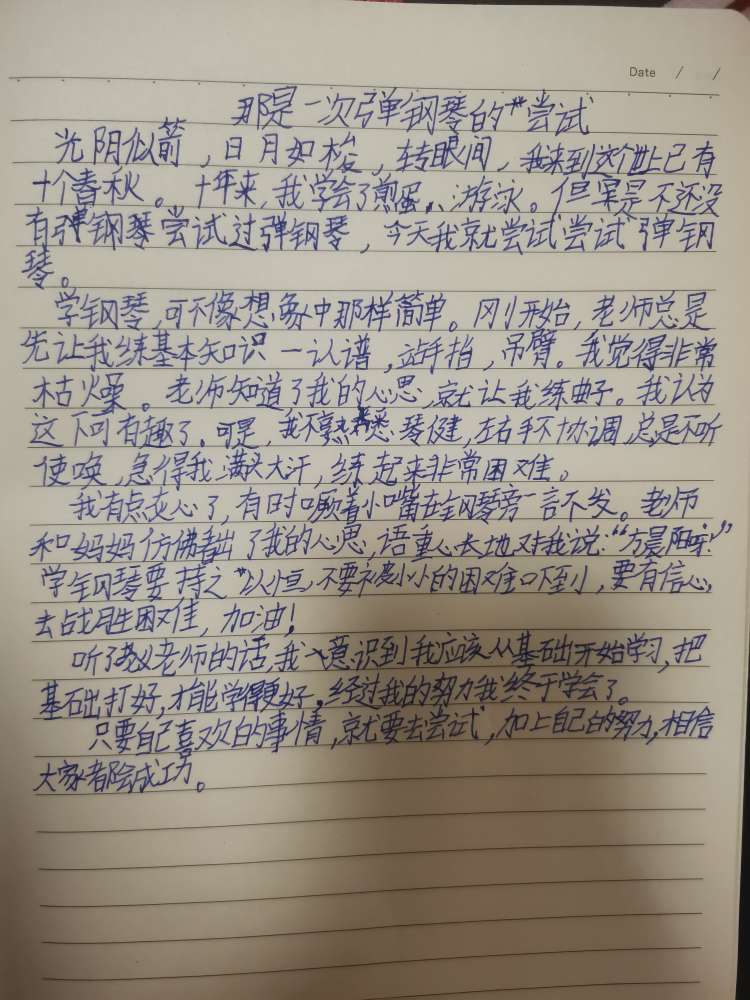 Date / /
那是一次弹钢琴的尝试
光阴似箭，日月如梭，转眼间，我来到这个世上已有
十个春秋。十年来，我学会了煎蛋、游泳。但是不还没
有弹钢琴尝试过弹钢琴，今天我就尝试尝试弹钢
琴。
学钢琴，可不像想象中那样简单。刚开始，老师总是
先让我练基本知识一认谱，站手指，吊臂。我觉得非常
枯燥。老师知道了我的心思，就让我练曲子。我认为
这下可有趣了。可是，我不熟悉琴健，左右手不协调，总是不听
使唤，急得我满头大汗，练起来非常困难。
我有点灰心了，有时噘着小嘴在钢琴旁一言不发。老师
和妈妈仿佛看出了我的心思，语重心长地对我说：“方晨阳呀！”
学钢琴要持之以恒，不要被小小的困难吓到，要有信心，
去战胜困难，加油！
听了老师的话，我意识到我应该从基础开始学习，把
基础打好，才能学得更好。经过我的努力我终于学会了。
只要自己喜欢的事情，就要去尝试，加上自己的努力，相信
大家都会成功。